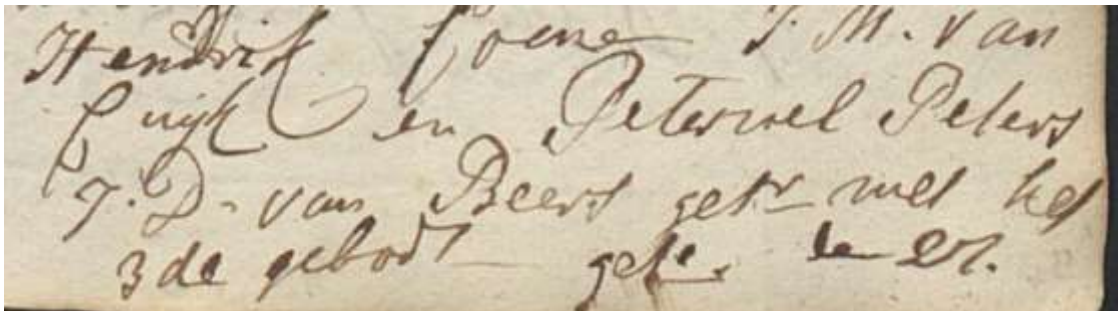 Hendrik Coene J. M. van
Cuijk en Peternel Peters
J. D. van Beers getr met het
3de gebodt get. de 27.